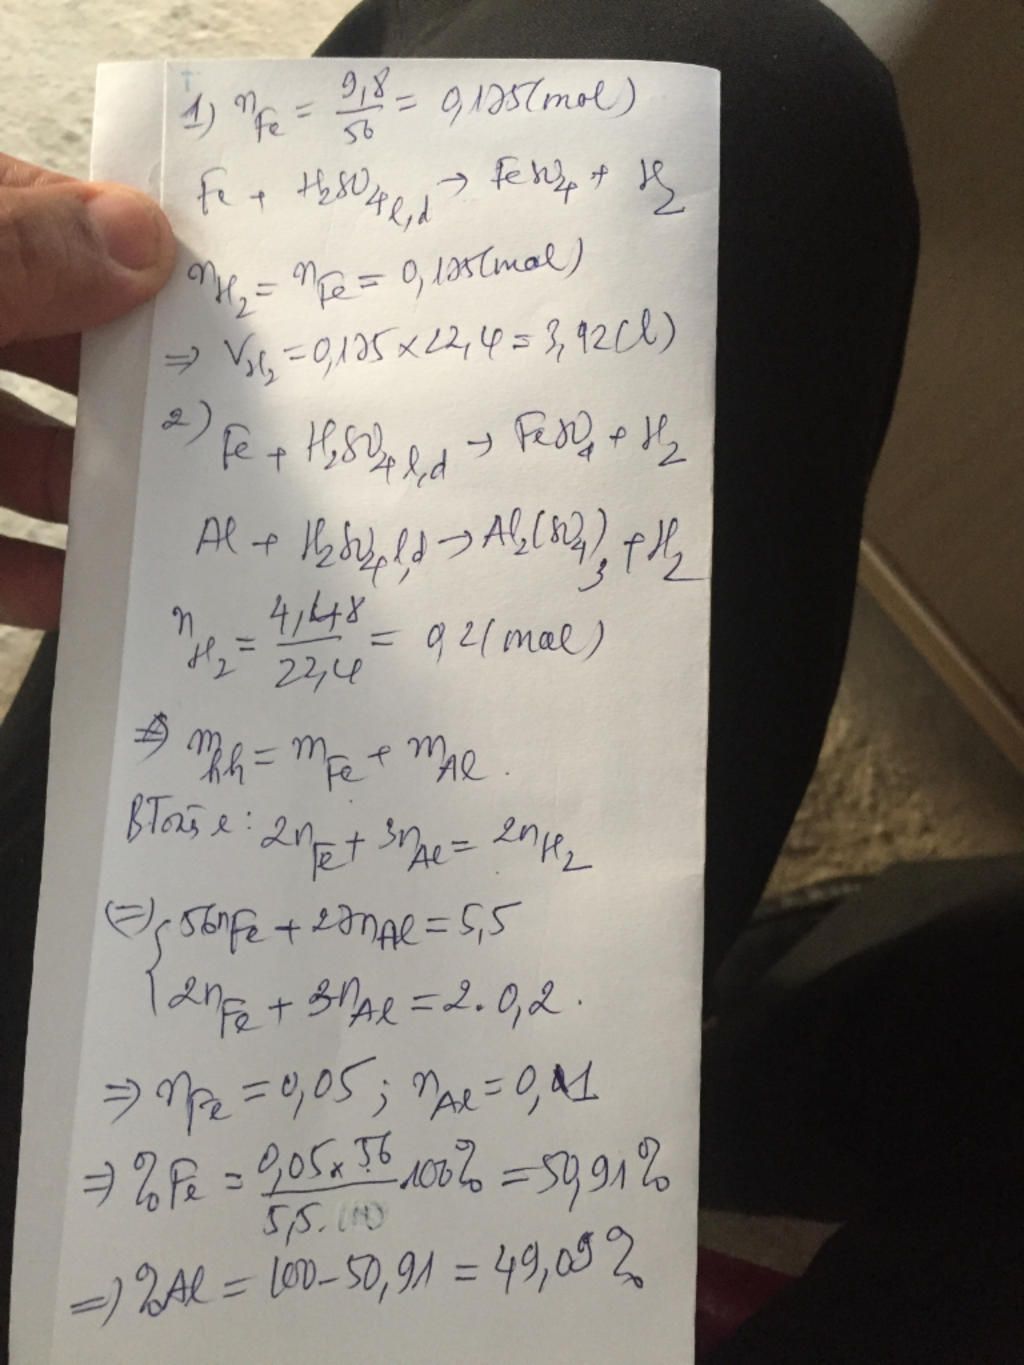 1) nFe = 9,8/56 = 0,175(mol)
Fe + H2SO4 l,d → FeSO4 + H2
nH2 = nFe = 0,175(mol)
⇒ VH2 = 0,175 × 22,4 = 3,92(l)
2) Fe + H2SO4 l,d → FeSO4 + H2
Al + H2SO4 l,d → Al2(SO4)3 + H2
nH2 = 4,48/22,4 = 0,2(mol)
⇒ mhh = mFe + mAl.
BToàn e: 2nFe + 3nAl = 2nH2
(=) { 56nFe + 27nAl = 5,5
2nFe + 3nAl = 2.0,2.
⇒ nFe = 0,05; nAl = 0,1
⇒ %Fe = 0,05 × 56/5,5 .100% = 50,91%
=) %Al = 100 - 50,91 = 49,09%